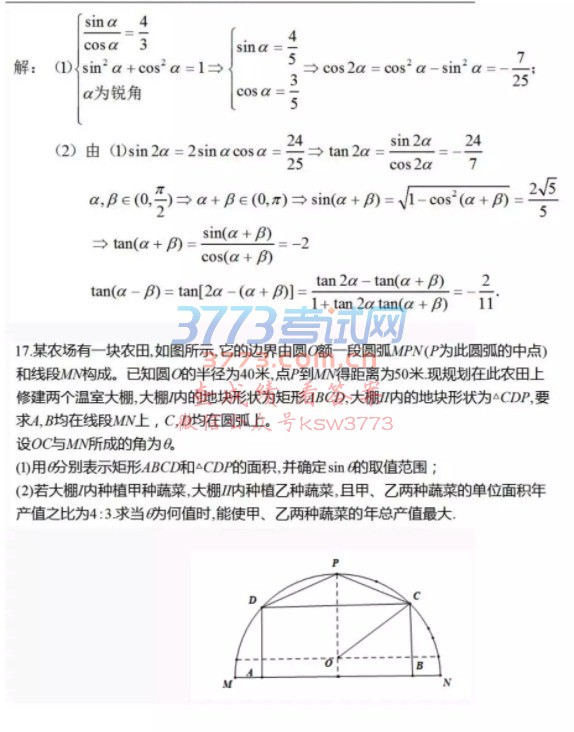 解： (1) { sinα/cosα = 4/3
sin²α + cos²α = 1 ⇒ { sinα = 4/5
α为锐角 cosα = 3/5 ⇒ cos2α = cos²α − sin²α = −7/25;
(2) 由 (1) sin2α = 2sinαcosα = 24/25 ⇒ tan2α = sin2α/cos2α = −24/7
α,β∈(0,π/2) ⇒ α+β∈(0,π) ⇒ sin(α+β) = √(1−cos²(α+β)) = 2√5/5
⇒ tan(α+β) = sin(α+β)/cos(α+β) = −2
tan(α−β) = tan[2α−(α+β)] = (tan2α−tan(α+β))/(1+tan2αtan(α+β)) = −2/11.
3773考试网
17.某农场有一块农田,如图所示,它的边界由圆O额一段圆弧MPN(P为此圆弧的中点)
3773.com.cn
和线段MN构成。已知圆O的半径为40米,点P到MN得距离为50米.现规划在此农田上
修建两个温室大棚,大棚I内的地块形状为矩形ABCD,大棚II内的地块形状为△CDP,要
查成绩 看答案
求A,B均在线段MN上，C,D均在圆弧上。
微信公众号ksw3773
设OC与MN所成的角为θ。
(1)用θ分别表示矩形ABCD和△CDP的面积,并确定sinθ的取值范围；
(2)若大棚I内种植甲种蔬菜,大棚II内种植乙种蔬菜,且甲、乙两种蔬菜的单位面积年
产值之比为4:3.求当θ为何值时,能使甲、乙两种蔬菜的年总产值最大.
P
D
C
O
A
B
M
N